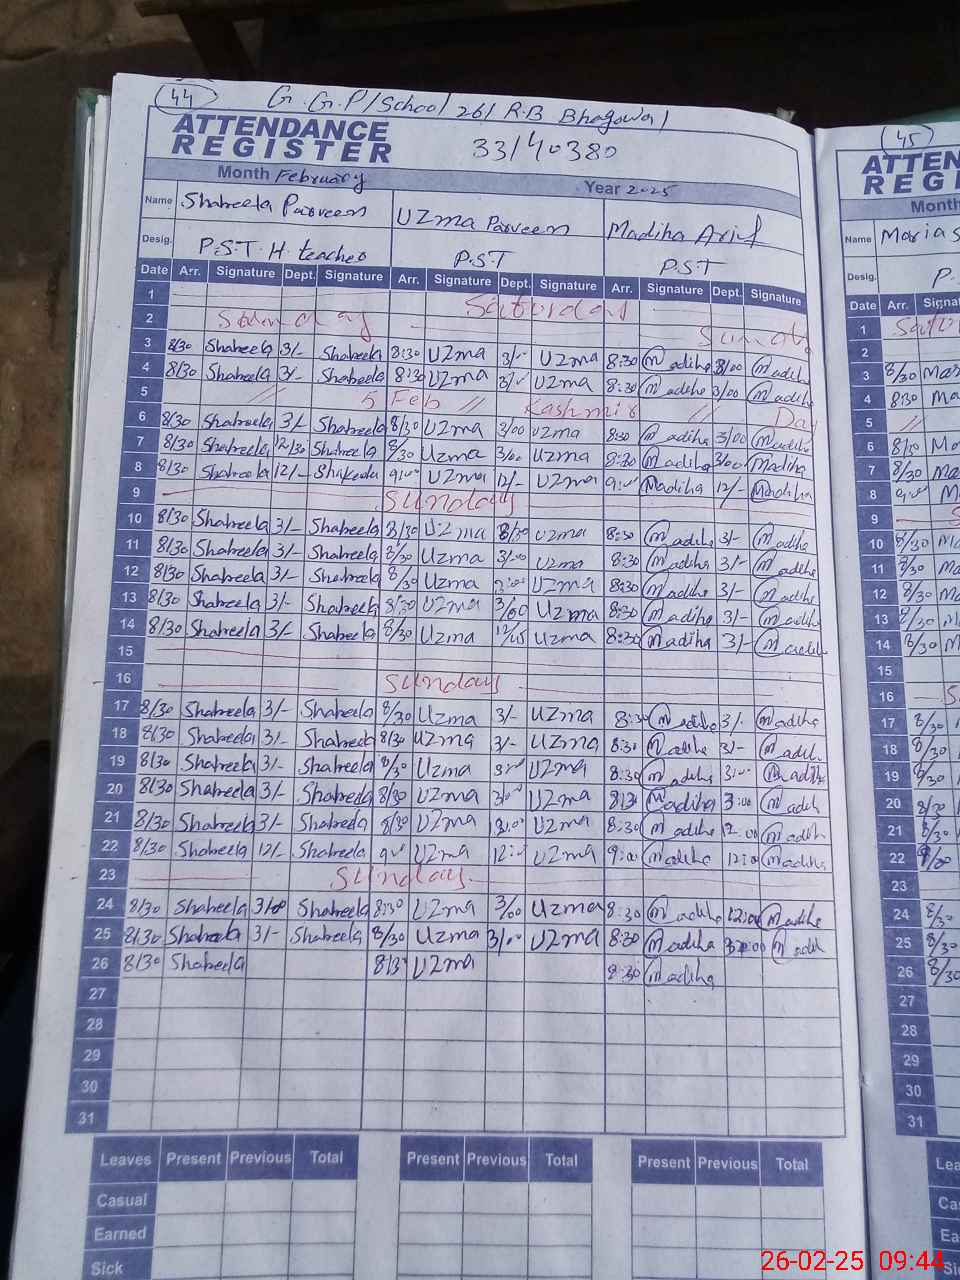 44 G.G.P/School 261 R.B Bhagowal
ATTENDANCE
REGISTER 33140380
Month February Year 2025
Name Shaheela Parveen Uzma Parveen Madiha Arif
Desig. P.S.T. H. teacher P.S.T P.S.T
Date Arr. Signature Dept. Signature Arr. Signature Dept. Signature Arr. Signature Dept. Signature
1 Saturday
2 Sunday Sunday
3 8/30 Shaheela 3/- Shaheela 8:30 Uzma 3/00 Uzma 8:30 Madiha 3/00 Madiha
4 8/30 Shaheela 3/- Shaheela 8:30 Uzma 3/00 Uzma 8:30 Madiha 3/00 Madiha
5 // 5 Feb // Kashmir // Day
6 8/30 Shaheela 3/- Shaheela 8/30 Uzma 3/00 Uzma 8:30 Madiha 3/00 Madiha
7 8/30 Shaheela 12/30 Shaheela 8/30 Uzma 3/00 Uzma 8:30 Madiha 3/00 Madiha
8 8/30 Shaheela 12/- Shaheela 9:00 Uzma 12/- Uzma 9:00 Madiha 12/- Madiha
9 Sunday
10 8/30 Shaheela 3/- Shaheela 8/30 Uzma Uzma 8:30 Madiha 3/- Madiha
11 8/30 Shaheela 3/- Shaheela 8/30 Uzma 3/00 Uzma 8:30 Madiha 3/- Madiha
12 8/30 Shaheela 3/- Shaheela 8/30 Uzma 3:00 Uzma 8:30 Madiha 3/- Madiha
13 8/30 Shaheela 3/- Shaheela 8/30 Uzma 3/00 Uzma 8:30 Madiha 3/- Madiha
14 8/30 Shaheela 3/- Shaheela 8/30 Uzma Uzma 8:30 Madiha 3/- Madiha
15
16 Sunday
17 8/30 Shaheela 3/- Shaheela 8/30 Uzma 3/- Uzma 8:30 Madiha 3/- Madiha
18 8/30 Shaheela 3/- Shaheela 8/30 Uzma 3/- Uzma 8:30 Madiha 3/- Madiha
19 8/30 Shaheela 3/- Shaheela 8/30 Uzma 3:00 Uzma 8:30 Madiha 3:00 Madiha
20 8/30 Shaheela 3/- Shaheela 8/30 Uzma 3/00 Uzma 8:30 Madiha 3:00 Madiha
21 8/30 Shaheela 3/- Shaheela 8/30 Uzma Uzma 8:30 Madiha 12:00 Madiha
22 8/30 Shaheela 12/- Shaheela 9:00 Uzma 12:00 Uzma 9:00 Madiha 12:00 Madiha
23 Sunday
24 8/30 Shaheela 3/00 Shaheela 8:30 Uzma 3/00 Uzma 8:30 Madiha 12:00 Madiha
25 8/30 Shaheela 3/- Shaheela 8/30 Uzma 3/00 Uzma 8:30 Madiha Madiha
26 8/30 Shaheela 8/30 Uzma 8:30 Madiha
27
28
29
30
31
Leaves Present Previous Total Present Previous Total Present Previous Total
Casual
Earned
Sick
45
ATTEN
REGI
Month
Name Maria S
Desig. P.
Date Arr. Signat
1
2
3 8/30 Mar
4 8:30 Ma
5 //
6 8/30 Ma
7 8/30 Ma
8 9:00 Ma
9
10 8/30 Ma
11 8/30 Ma
12 8/30 Ma
13 8/30 M
14 8/30 M
15
16
17 8/30 M
18 8/30
19 8/30
20 8/30
21 8/30
22 9/00
23
24 8/30
25 8/30
26 8/30
27
28
29
30
31
Lea
Ca
Ea
Si
26-02-25 09:44